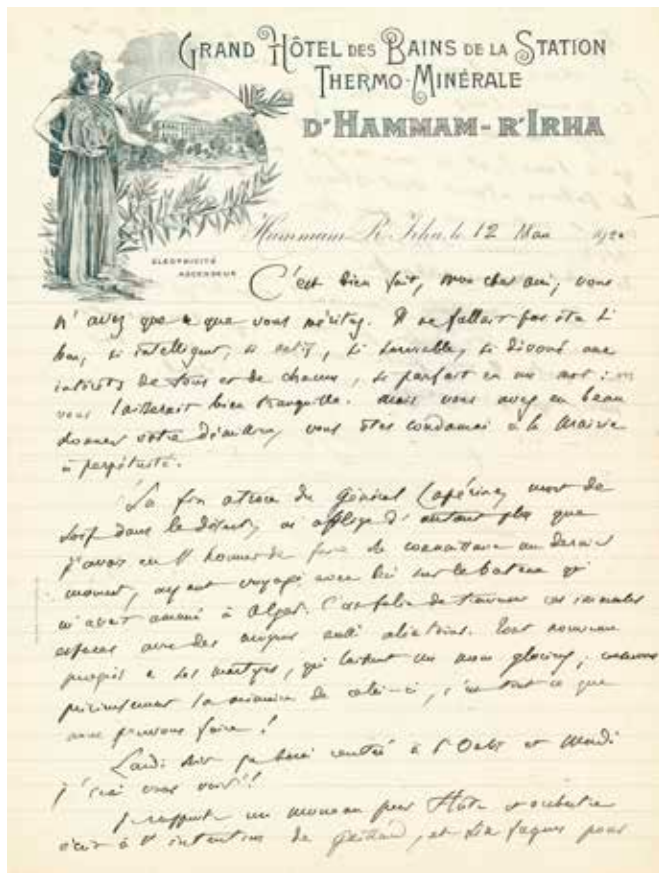 GRAND HÔTEL DES BAINS DE LA STATION
THERMO-MINÉRALE
D'HAMMAM-R'IRHA
ÉLECTRICITÉ
ASCENSEUR
Hammam R'Irha, le 12 Mars 1920
C'est bien fait, mon cher ami, vous
n'avez que ce que vous méritez. Il ne fallait pas être si
bon, si intelligent, si actif, si serviable, si dévoué aux
intérêts de tous et de chacun, si parfait en un mot : on
vous laisserait bien tranquille. Mais vous avez eu beau
donner votre démission, vous êtes condamné à la Mairie
à perpétuité.
La fin atroce du Général Lapérine, mort de
soif dans le désert, m'afflige d'autant plus que
j'avais eu l'honneur de faire sa connaissance au dernier
moment, ayant voyagé avec lui sur le bateau qui
m'avait amené à Alger. C'est folie de traverser ces immenses
espaces avec des moyens aussi aléatoires. Tout nouveau
progrès a ses martyrs, qui laissent un nom glorieux ; conservons
précieusement la mémoire de celui-ci, c'est tout ce que
nous pouvons faire !
Lundi soir je serai rentré à l'Oasis et Mardi
j'irai vous voir !
Je rapporte un morceau pour Flûte et orchestre
écrit à l'intention de , et six fugues pour